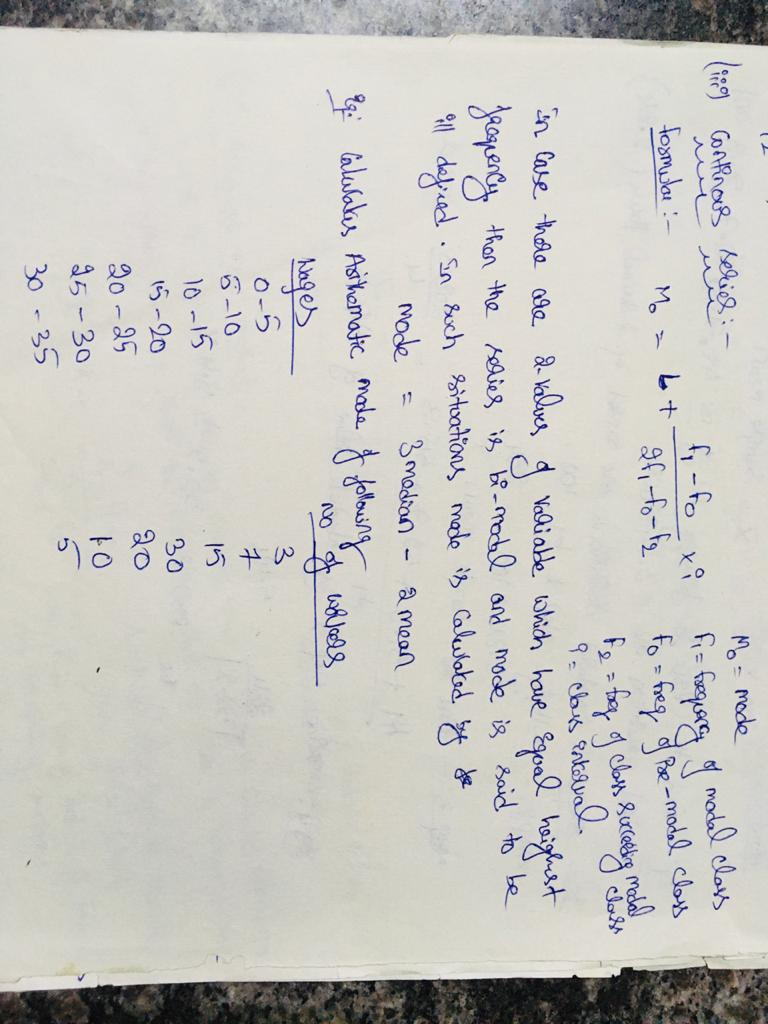 (iii) Continous series:-
formula:- M₀ = L + f₁ - f₀ / 2f₁ - f₀ - f₂ × i
M₀ = mode
f₁ = frequency of modal class
f₀ = freq of Pre-modal class
f₂ = freq of class succeeding modal class
i = class interval.
in case there are 2-values of variable which have equal heighest
frequency then the series is bi-modal and mode is said to be
ill defined. In such situations mode is calculated by
mode = 3 median - 2 mean
Eg: Calculates Arithematic mode of following
Wages no of workers
0-5 3
5-10 7
10-15 15
15-20 30
20-25 20
25-30 10
30-35 5